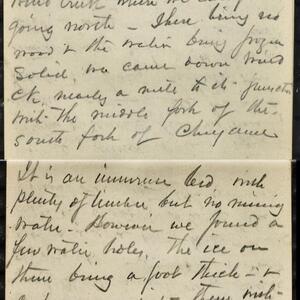 going north - There being no
wood & the water being frozen
solid, we came down Wind
Ck. nearly a mile to its junction
with the middle fork of the
south fork of Cheyenne
It is an immense bed with
plenty of timber but no running
water. However we found a
few water holes. The ice on
them being a foot thick - &